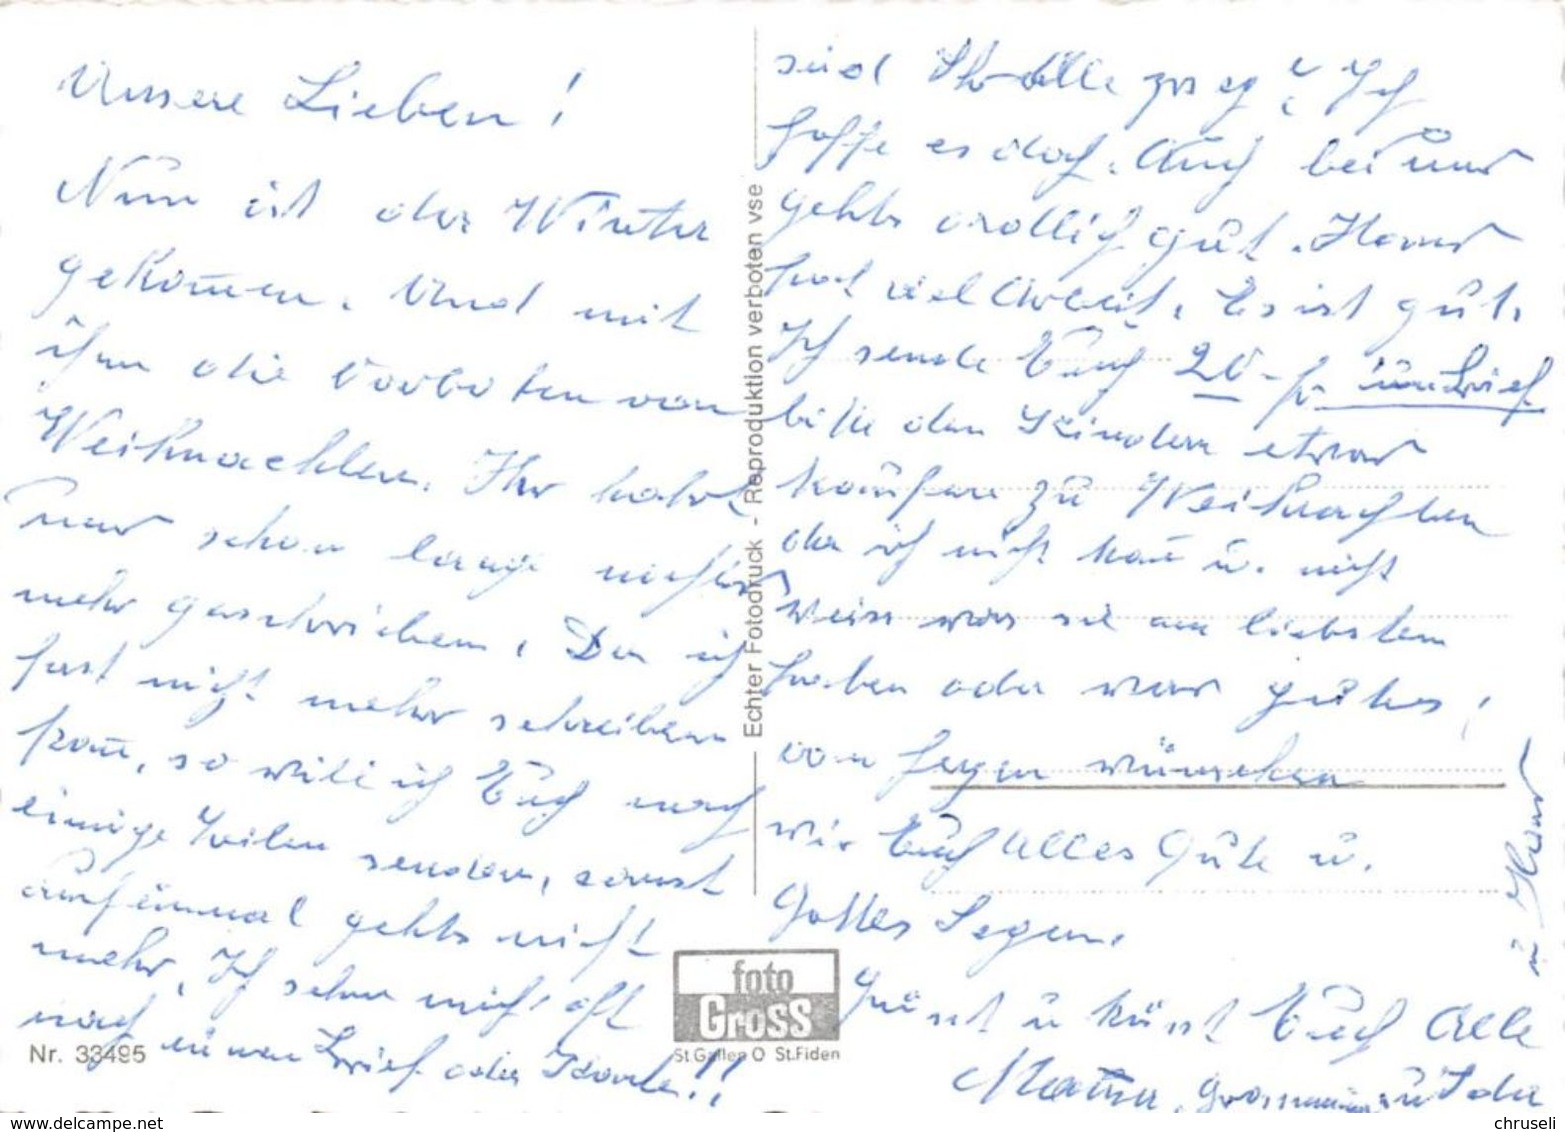 Unsere Lieben!
Nun ist der Winter
gekom̅en. Und mit
ihm die Vorboten von
Weihnachten. Ihr habt
uns schon lange nichts
mehr geschrieben. Da ich
fast nicht mehr schreiben
kan̅, so will ich Euch noch
einige Zeilen senden, sonst
aufeinmal gehts nicht
mehr. Ich sehne mich oft
nach einen Brief oder Karte!!
sind alle zweg? Ich
hoffe es doch. Auch bei uns
gehts ordlich gut. Hans
hat viel Arbeit. Es ist gut.
Ich sende Euch 20.- fr. im Brief
bitte den Kindern etwas
kaufen zu Weihnachten
da ich nicht kan̅ u. nicht
weiss was sie am liebsten
haben oder was gutes,
von Herzen wünschen
wir Euch alles Gute u.
Gottes Segen.
Grüsst u küsst Euch alle
Mama, Grossmama u Ida
u Hans
Echter Fotodruck - Reproduktion verboten vse
foto
Gross
St.Gallen O St.Fiden
Nr. 33495
www.delcampe.net
chruseli